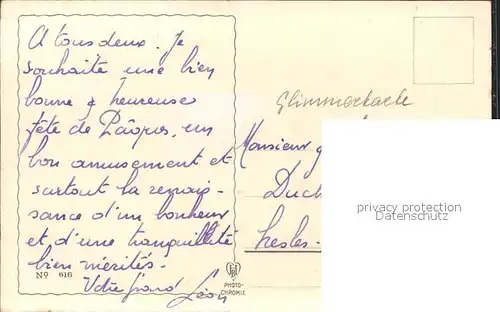 A tous deux. Je
souhaite une bien
bonne & heureuse
fête de Pâques, un
bon amusement et
surtout la renais-
sance d'un bonheur
et d'une tranquillité
bien mérités.
Votre Léon
No 616
PHOTO-
CHROMIE
Monsieur
Duch
privacy protection
Datenschutz